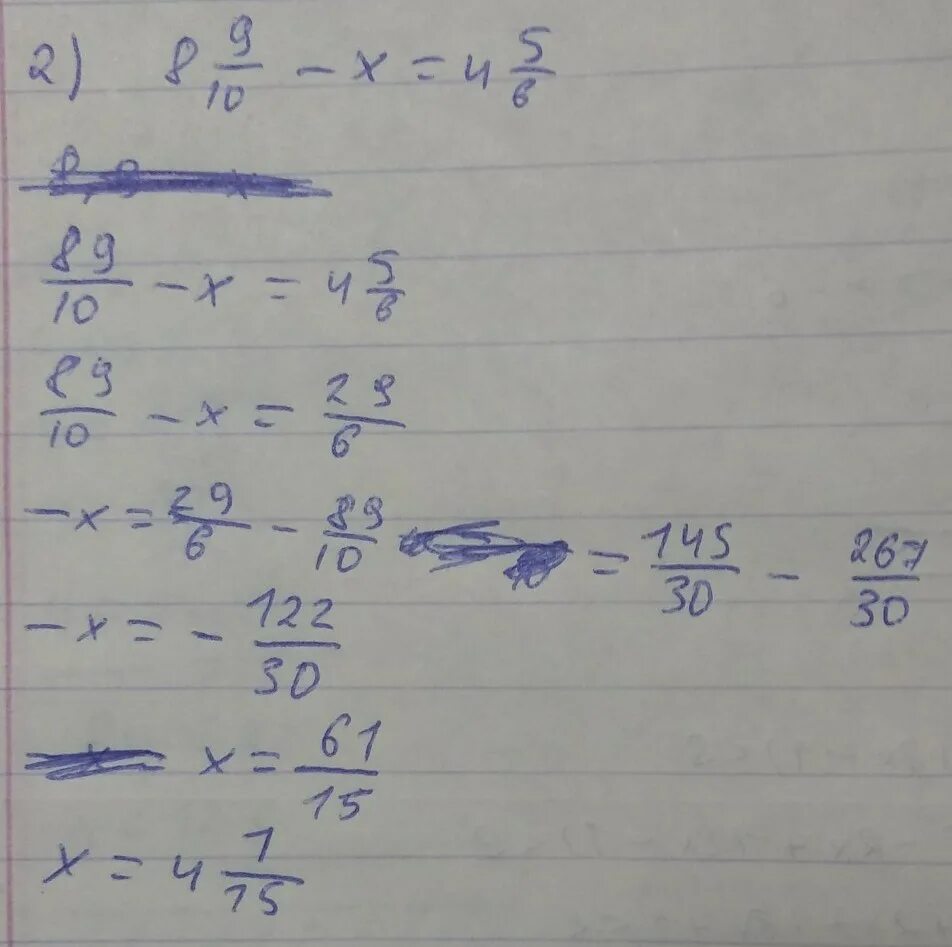 2) 8 9/10 - x = 4 5/6
89/10 - x = 4 5/6
89/10 - x = 29/6
-x = 29/6 - 89/10 = 145/30 - 267/30
-x = - 122/30
x = 61/15
x = 4 1/15